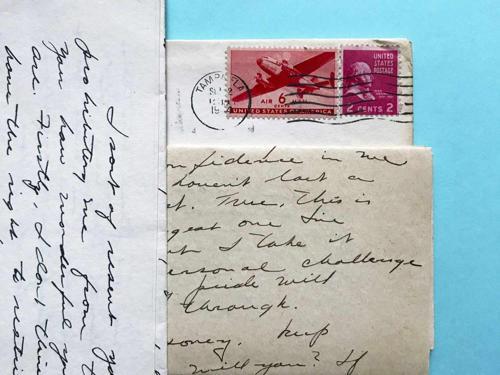 I sort of resent yo
prohibiting me from t
you how wonderful yo
are. Firstly, I don't thin
have the right to
TAMPA, FLA
AIR 6
CENTS
UNITED STATES OF AMERICA
UNITED
STATES
POSTAGE
2 CENTS 2
nfidence in me
haven't lost a
et. True, this is
ggest one I've
ut I take it
ersonal challenge
pride will
through.
oney, keep
will you? If